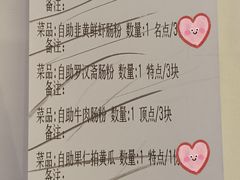 备注:
菜品:自助韭黄鲜虾肠粉 数量:1 名点/3
备注:
菜品:自助罗汉斋肠粉 数量:1 特点/3块
备注:
菜品:自助牛肉肠粉 数量:1 顶点/3块
备注:
菜品:自助果仁拍黄瓜 数量:1 特点/1
备注: